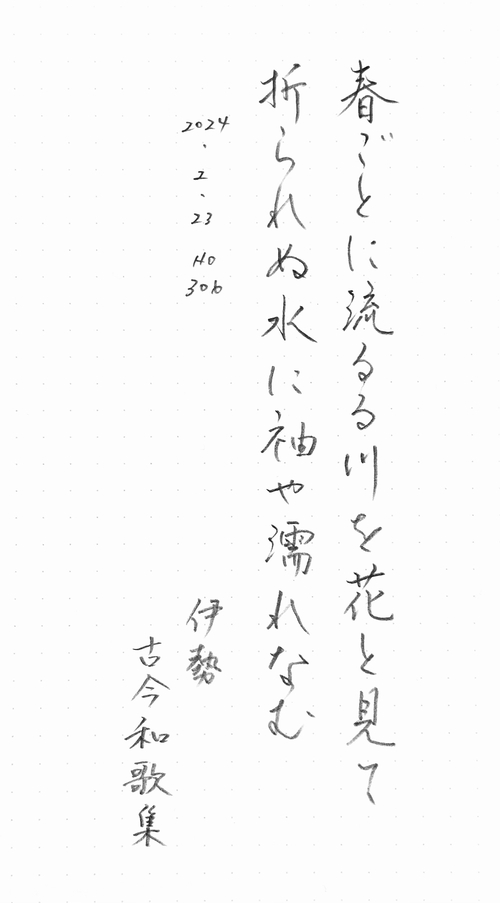 春ごとに流るる川を花と見て
折られぬ水に袖や濡れなむ
2024.2.23 HO 306
伊勢
古今和歌集